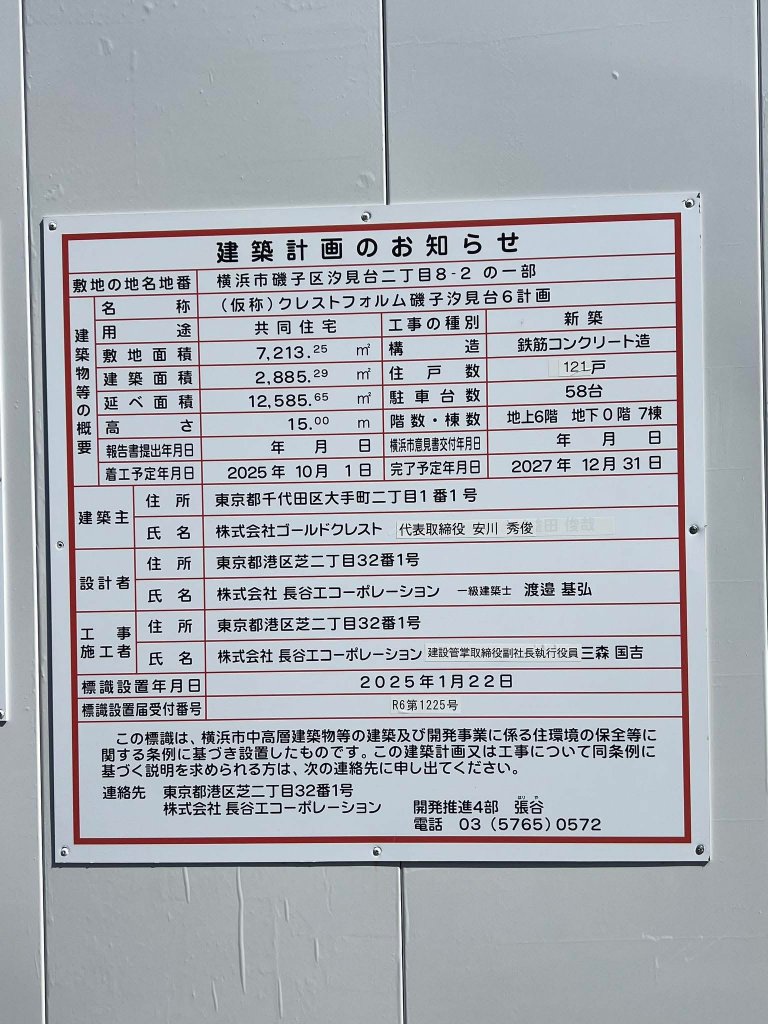 建築計画のお知らせ
敷地の地名地番 横浜市磯子区汐見台二丁目8-2 の一部
建築物等の概要
名称 (仮称)クレストフォルム磯子汐見台6計画
用途 共同住宅 工事の種別 新築
敷地面積 7,213.25 ㎡ 構造 鉄筋コンクリート造
建築面積 2,885.29 ㎡ 住戸数 121戸
延べ面積 12,585.65 ㎡ 駐車台数 58台
高さ 15.00 m 階数・棟数 地上6階 地下0階 7棟
報告書提出年月日 年 月 日 横浜市意見書交付年月日 年 月 日
着工予定年月日 2025年 10月 1日 完了予定年月日 2027年 12月 31日
建築主 住所 東京都千代田区大手町二丁目1番1号
氏名 株式会社ゴールドクレスト 代表取締役 安川 秀俊
設計者 住所 東京都港区芝二丁目32番1号
氏名 株式会社 長谷エコーポレーション 一級建築士 渡邉 基弘
工事施工者 住所 東京都港区芝二丁目32番1号
氏名 株式会社 長谷エコーポレーション 建設管掌取締役副社長執行役員 三森 国吉
標識設置年月日 2025年1月22日
標識設置届受付番号 R6第1225号
この標識は、横浜市中高層建築物等の建築及び開発事業に係る住環境の保全等に
関する条例に基づき設置したものです。この建築計画又は工事について同条例に
基づく説明を求められる方は、次の連絡先に申し出てください。
連絡先 東京都港区芝二丁目32番1号
株式会社 長谷エコーポレーション 開発推進4部 張谷
電話 03 (5765) 0572